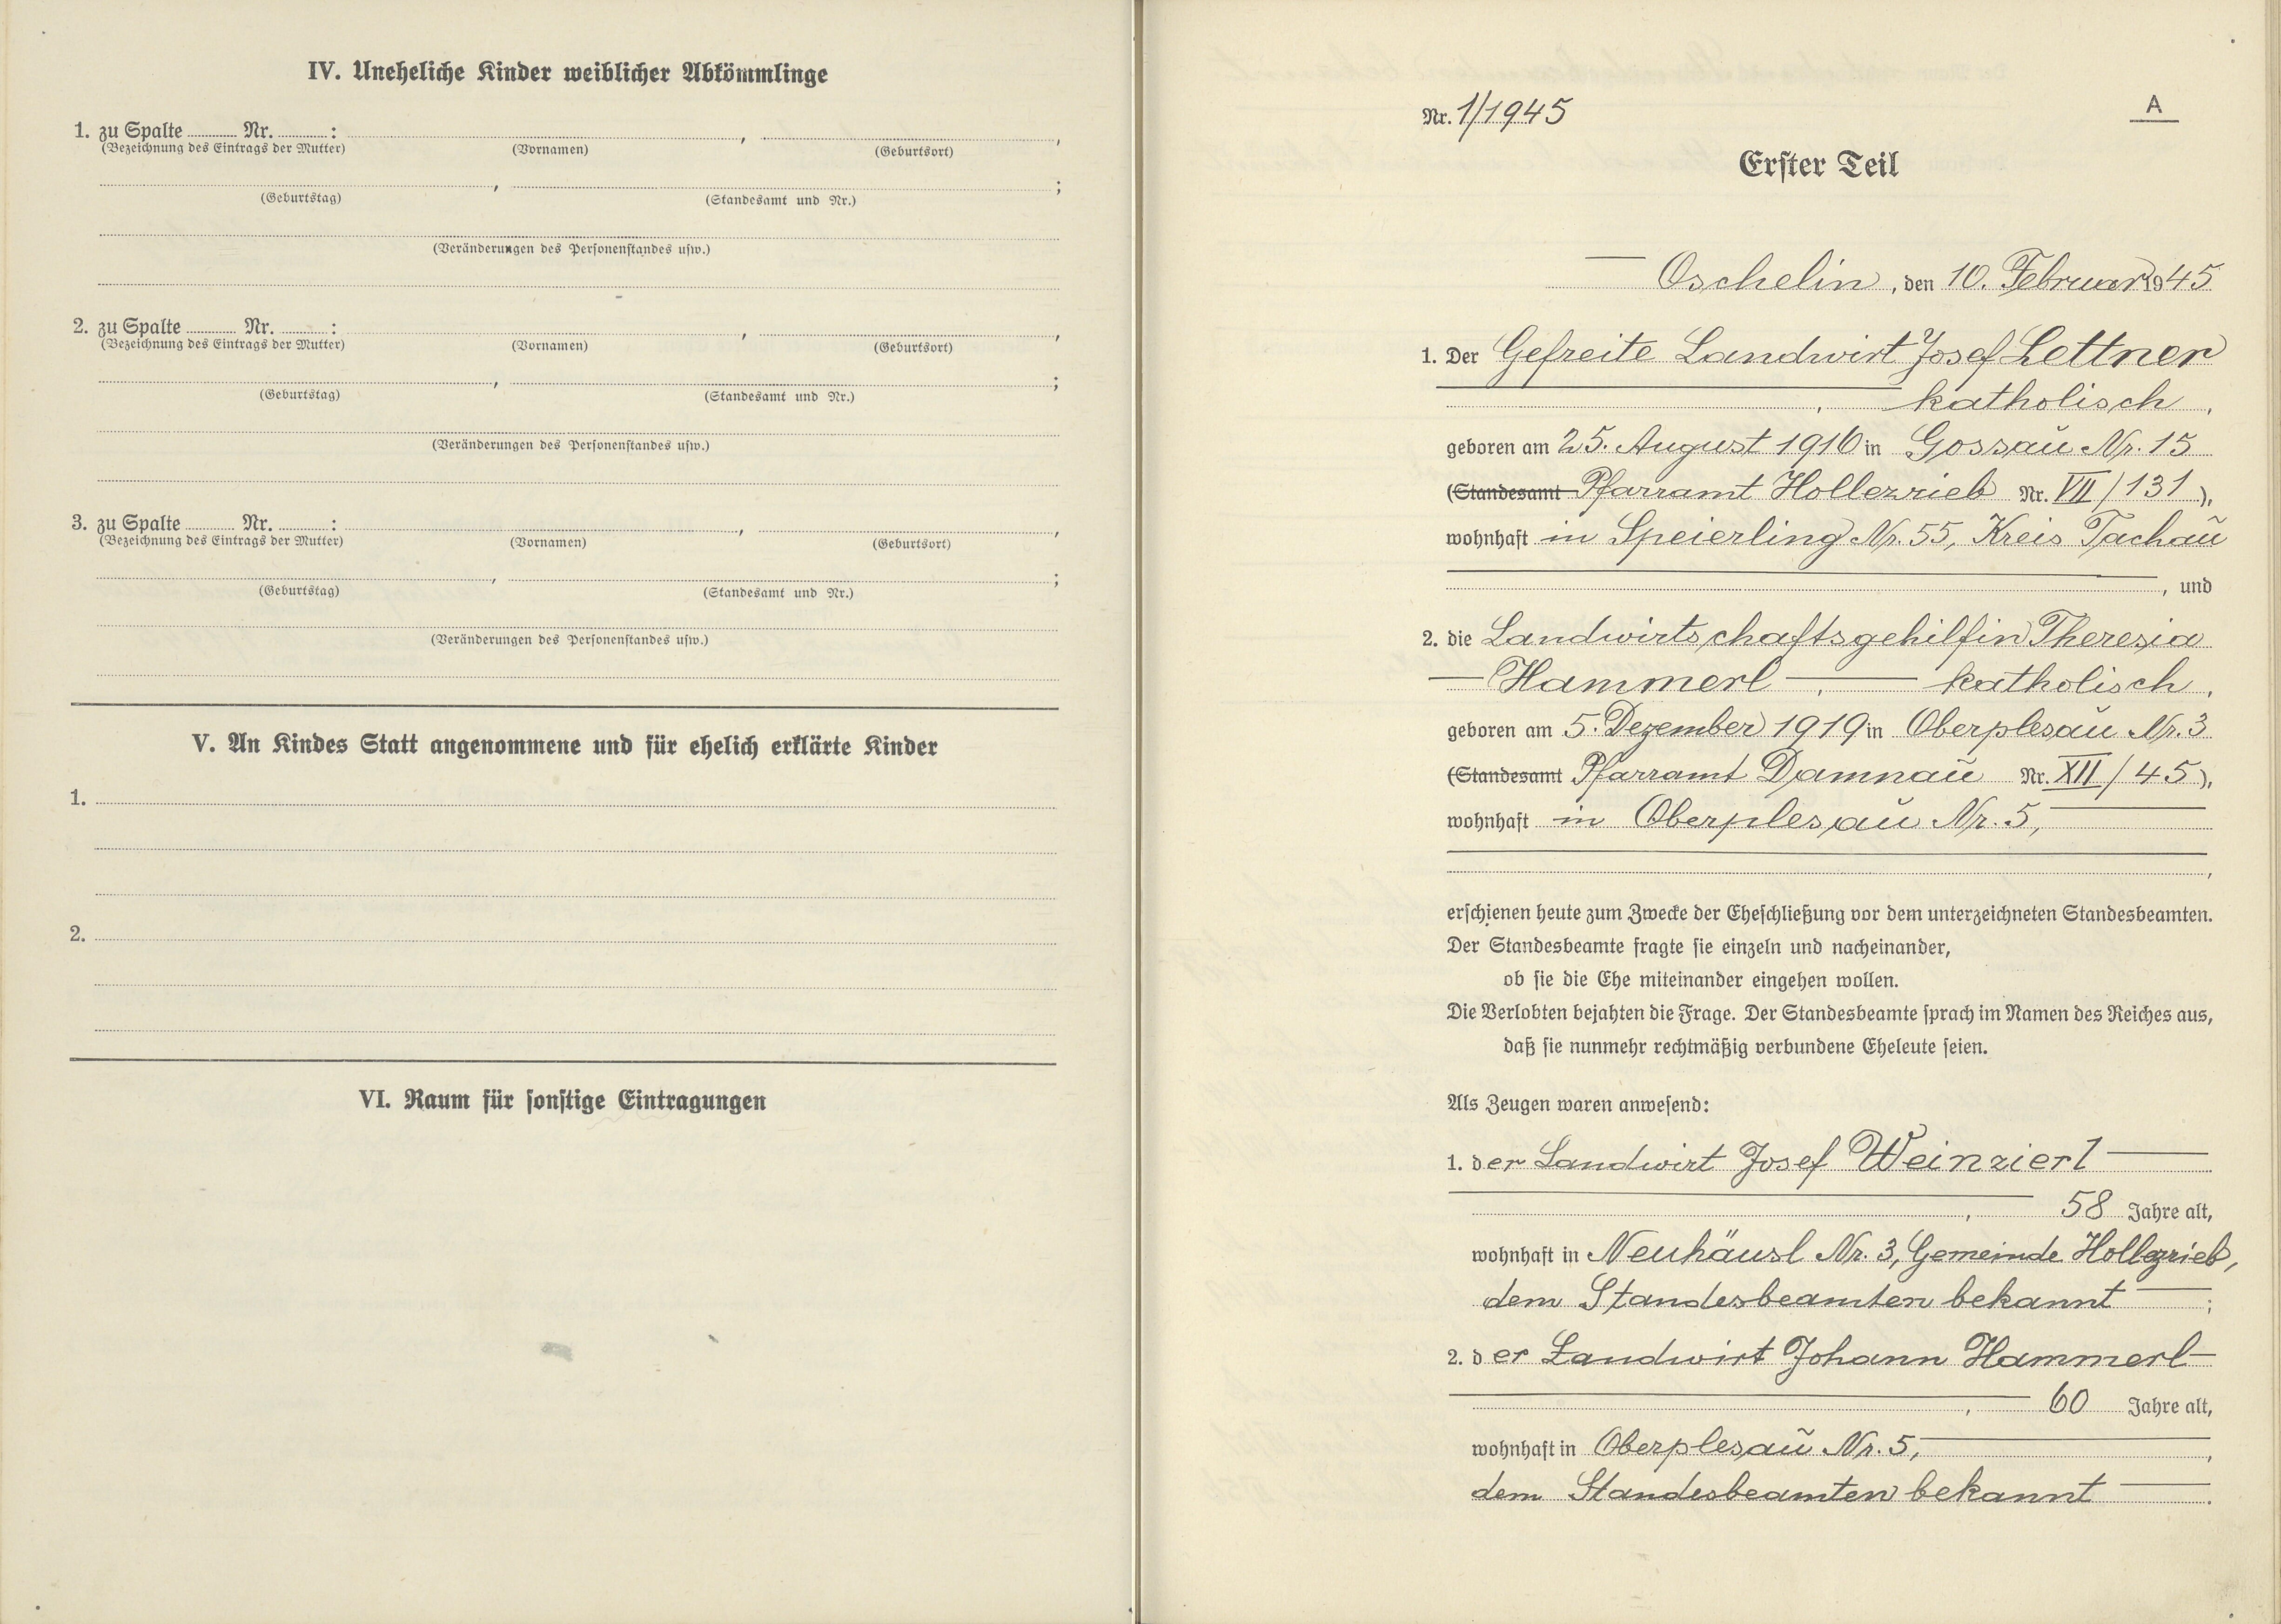 IV. Uneheliche Kinder weiblicher Abkömmlinge
1. zu Spalte Nr. : , ,
(Bezeichnung des Eintrags der Mutter) (Vornamen) (Geburtsort)
, ;
(Geburtstag) (Standesamt und Nr.)
(Veränderungen des Personenstandes usw.)
2. zu Spalte Nr. : , ,
(Bezeichnung des Eintrags der Mutter) (Vornamen) (Geburtsort)
, ;
(Geburtstag) (Standesamt und Nr.)
(Veränderungen des Personenstandes usw.)
3. zu Spalte Nr. : , ,
(Bezeichnung des Eintrags der Mutter) (Vornamen) (Geburtsort)
, ;
(Geburtstag) (Standesamt und Nr.)
(Veränderungen des Personenstandes usw.)
V. An Kindes Statt angenommene und für ehelich erklärte Kinder
1.
2.
VI. Raum für sonstige Eintragungen
A
Nr. 1/1945
Erster Teil
Oschelin, den 10. Februar 1945
1. Der Gefreite Landwirt Josef Lettner
, katholisch,
geboren am 25. August 1916 in Gossau Nr. 15
(Standesamt Pfarramt Hollezrieb Nr. VII/131),
wohnhaft in Speierling Nr. 55, Kreis Tachau
, und
2. die Landwirtschaftsgehilfin Theresia
Hammerl, katholisch,
geboren am 5. Dezember 1919 in Oberplesau Nr. 3
(Standesamt Pfarramt Damnau Nr. XII/45),
wohnhaft in Oberplesau Nr. 5,
,
erschienen heute zum Zwecke der Eheschließung vor dem unterzeichneten Standesbeamten.
Der Standesbeamte fragte sie einzeln und nacheinander,
ob sie die Ehe miteinander eingehen wollen.
Die Verlobten bejahten die Frage. Der Standesbeamte sprach im Namen des Reiches aus,
daß sie nunmehr rechtmäßig verbundene Eheleute seien.
Als Zeugen waren anwesend:
1. der Landwirt Josef Weinzierl
, 58 Jahre alt,
wohnhaft in Neuhäusl Nr. 3, Gemeinde Hollezrieb,
dem Standesbeamten bekannt ;
2. der Landwirt Johann Hammerl
, 60 Jahre alt,
wohnhaft in Oberplesau Nr. 5, ,
dem Standesbeamten bekannt .